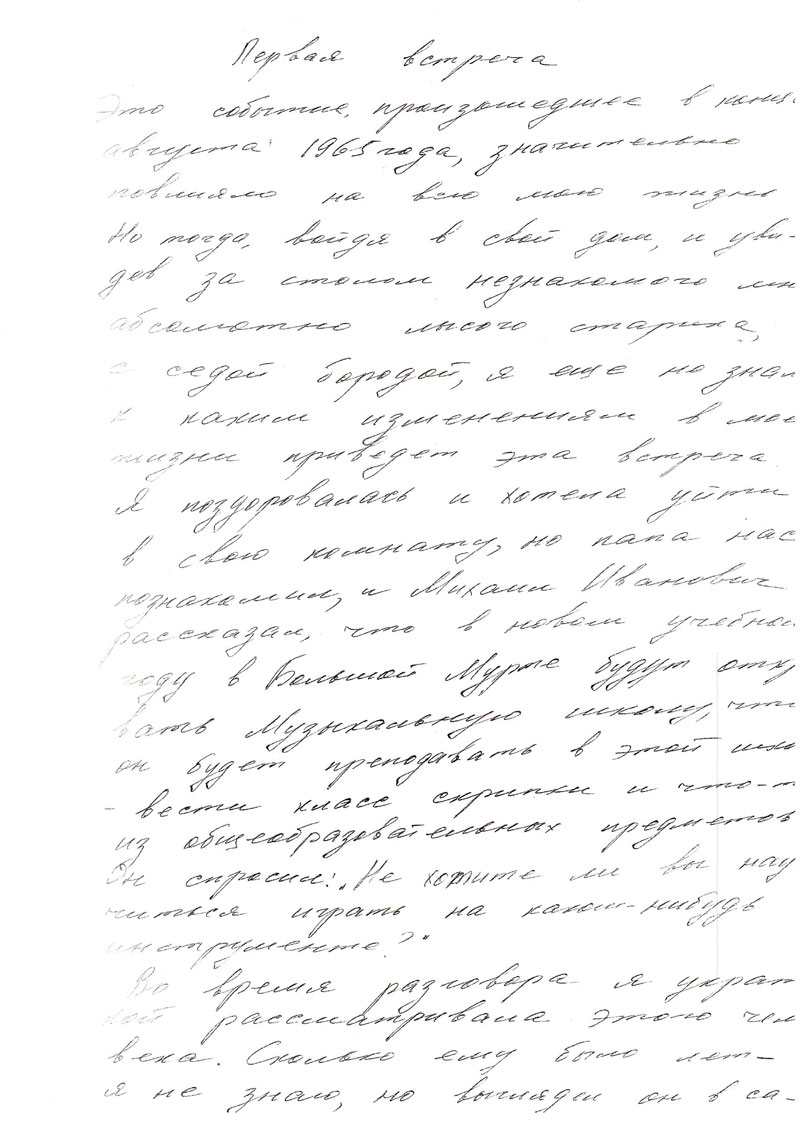 Первая встреча
Это событие, произошедшее в конце
августа 1965 года, значительно
повлияло на всю мою жизнь
Но тогда, войдя в свой дом, и уви-
дев за столом незнакомого мне
абсолютно лысого старика,
с седой бородой, я еще не знал
к каким изменениям в мое
жизни приведет эта встреча
Я поздоровалась и хотела уйти
в свою комнату, но папа нас
познакомил, и Михаил Иванович
рассказал, что в новом учебном
году в Большой Мурте будут откр
вать Музыкальную школу, что
он будет преподавать в этой шко
- вести класс скрипки и что-т
из общеобразовательных предметов
Он спросил: „Не хотите ли вы нау
читься играть на каком-нибудь
инструменте?"
Во время разговора я украд
кой рассматривала этого чел
века. Сколько ему было лет-
я не знаю, но выглядел он в са-